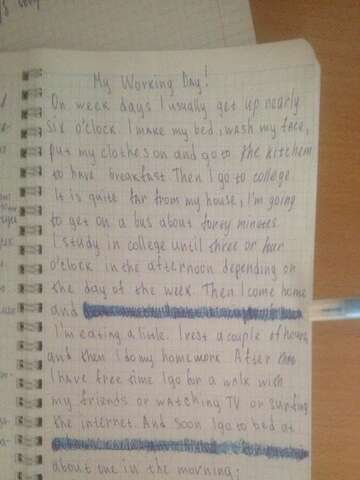 My Working Day!
On week days I usually get up nearly
six o'clock. I make my bed, wash my face,
put my clothes on and go to the kitchen
to have breakfast Then I go to college
It is quite far from my house, I'm going
to get on a bus about forty minutes
I study in college until three or four
o'clock in the afternoon depending on
the day of the week. Then I come home
and
I'm eating a little. I rest a couple of hours,
and then I do my homework After
I have free time I go for a walk with
my friends or watching TV or surfing
the internet. And soon I go to bed at
about one in the morning.